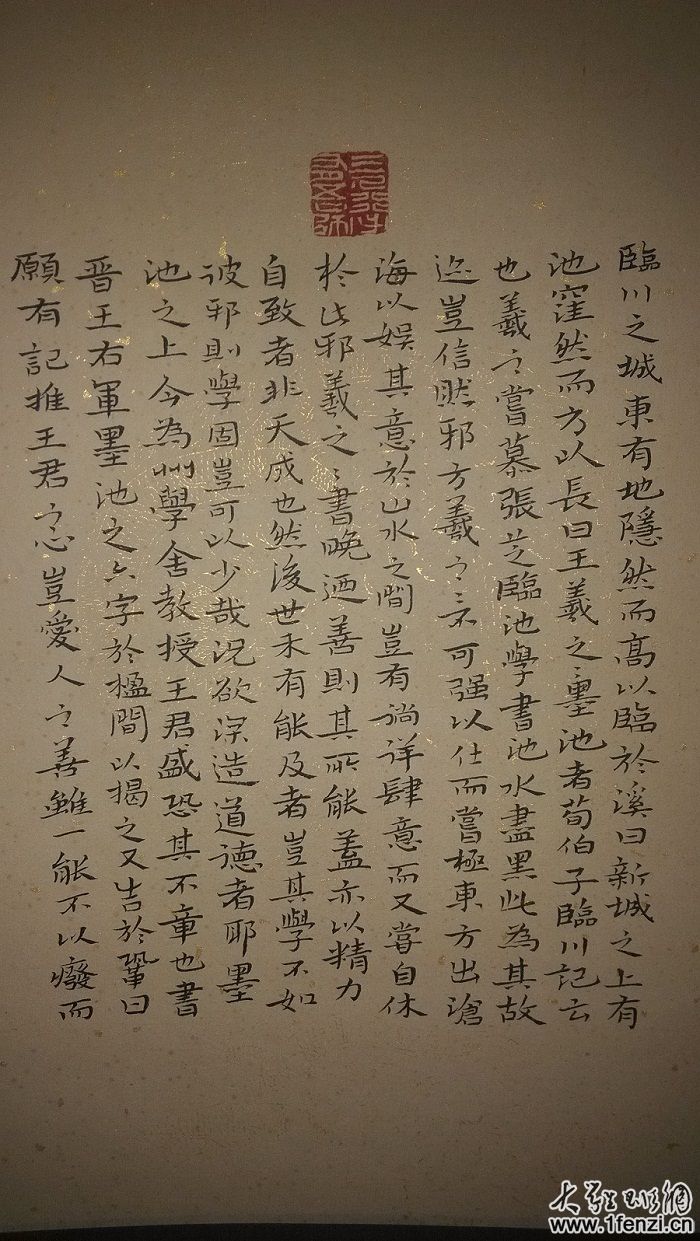 臨川之城東有地隱然而高以臨於溪曰新城之上有
池窪然而方以長曰王羲之墨池者荀伯子臨川記云
也羲之嘗慕張芝臨池學書池水盡黑此為其故
迹豈信然邪方羲之之不可强以仕而嘗極東方出滄
海以娱其意於山水之間豈有徜徉肆意而又嘗自休
於此邪羲之之書晚迺善則其所能蓋亦以精力
自致者非天成也然後世未有能及者豈其學不如
彼邪則學固豈可以少哉況欲深造道德者耶墨
池之上今為州學舍教授王君盛恐其不章也書
晋王右軍墨池之六字於楹間以揭之又告於鞏曰
願有記推王君之心豈愛人之善雖一能不以癈而
www.1fenzi.cn